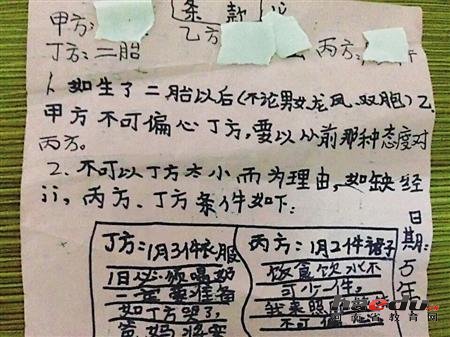 条款
甲方:
乙方
丙方:
丁方:二胎
1、如生了二胎以后(不论男女龙凤、双胞)乙
甲方不可偏心丁方,要以从前那种态度对
丙方。
2、不可以丁方太小而为理由,如缺经
济,丙方、丁方条件如下:
丁方:1月3件衣服
1日必须喝奶
一定要准备
如丁方哭了,
爸妈将要
丙方:1月2件裙子
饭食饮水不
可少一件。
我来照
不可
日期:万年
河南省教育网